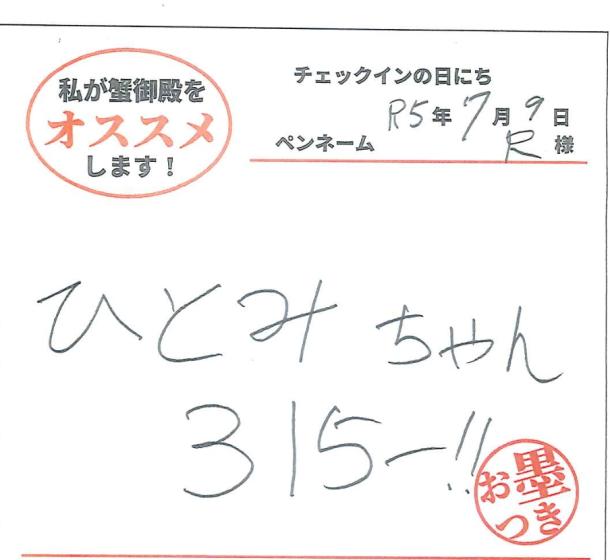 私が蟹御殿を
オススメ
します！
チェックインの日にち
R5年7月9日
ペンネーム R 様
ひとみちゃん
315ー!!
お墨
つき